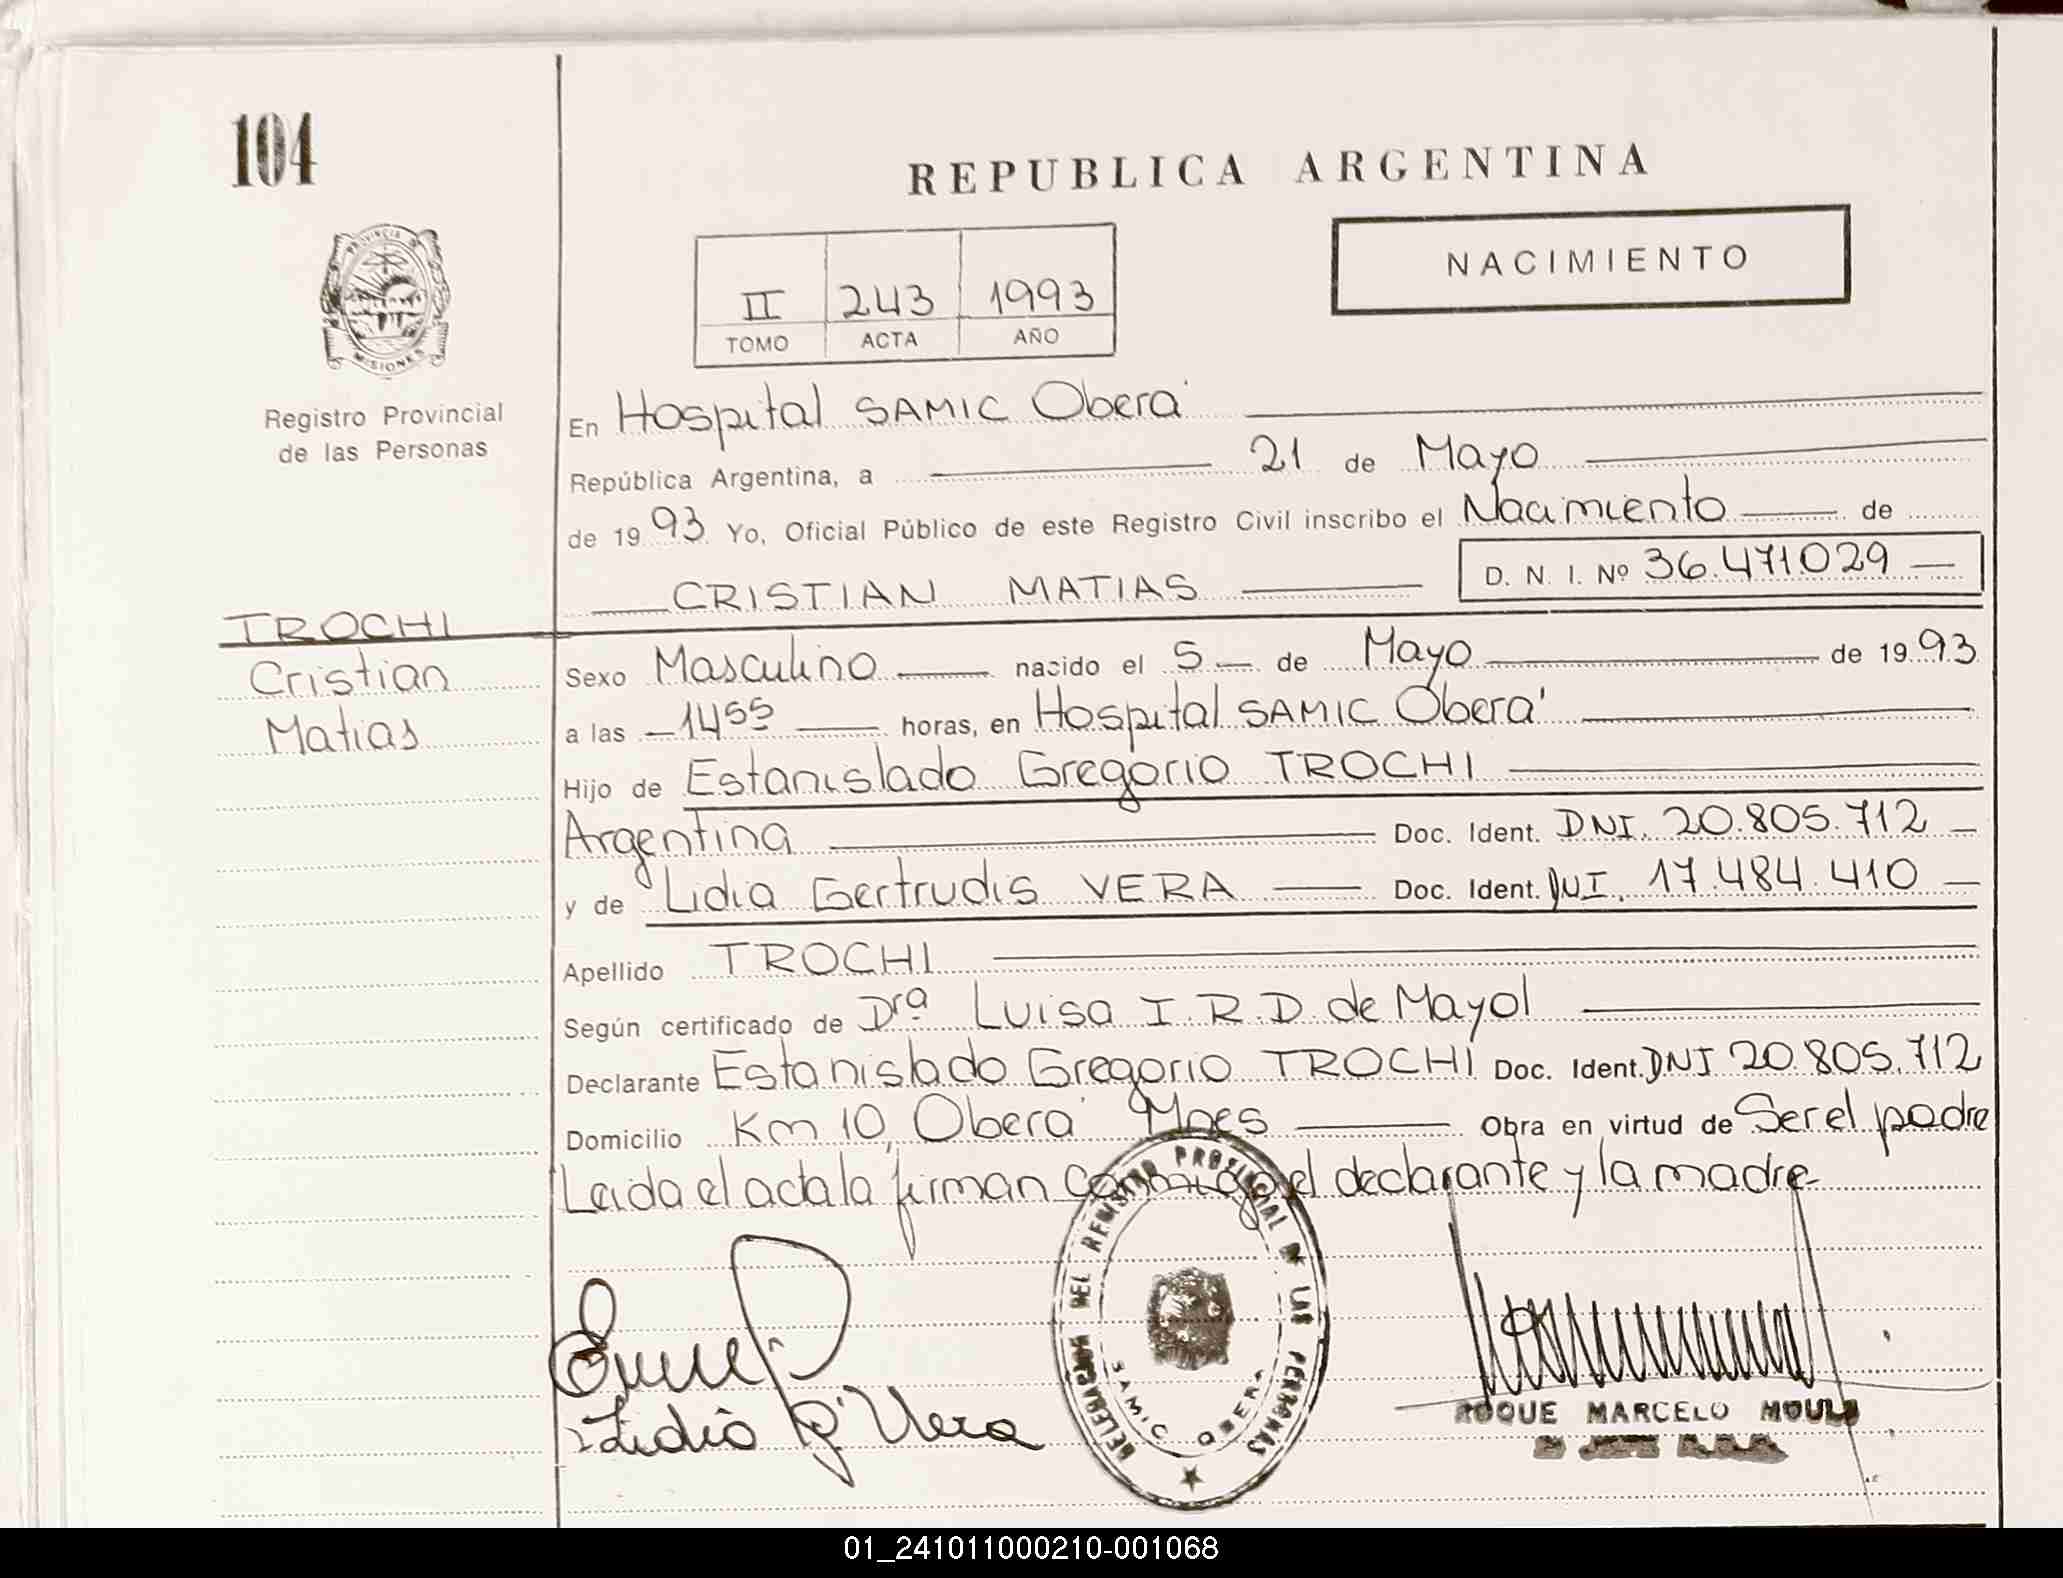 104
REPUBLICA ARGENTINA
PROVINCIA DE
MISIONES
NACIMIENTO
II 243 1993
TOMO ACTA AÑO
Registro Provincial
de las Personas
En Hospital SAMIC Oberá
República Argentina, a 21 de Mayo
de 1993 Yo, Oficial Público de este Registro Civil inscribo el Nacimiento de
CRISTIAN MATIAS D. N. I. Nº 36.471.029
TROCHI
Cristian
Matias
Sexo Masculino nacido el 5 de Mayo de 1993
a las 14⁵⁵ horas, en Hospital SAMIC Oberá
Hijo de Estanislado Gregorio TROCHI
Argentina Doc. Ident. DNI. 20.805.712
y de Lidia Gertrudis VERA Doc. Ident. DNI. 17.484.410
Apellido TROCHI
Según certificado de Drª Luisa I.R.D. de Mayol
Declarante Estanislado Gregorio TROCHI Doc. Ident. DNI 20.805.712
Domicilio Km 10, Oberá Mnes Obra en virtud de Ser el padre
Leida el acta la firman conmigo el declarante y la madre
DEL REGISTRO PROVINCIAL DE LAS PERSONAS
SAMIC OBERA
Lidia G. Vera
ROQUE MARCELO
01_241011000210-001068